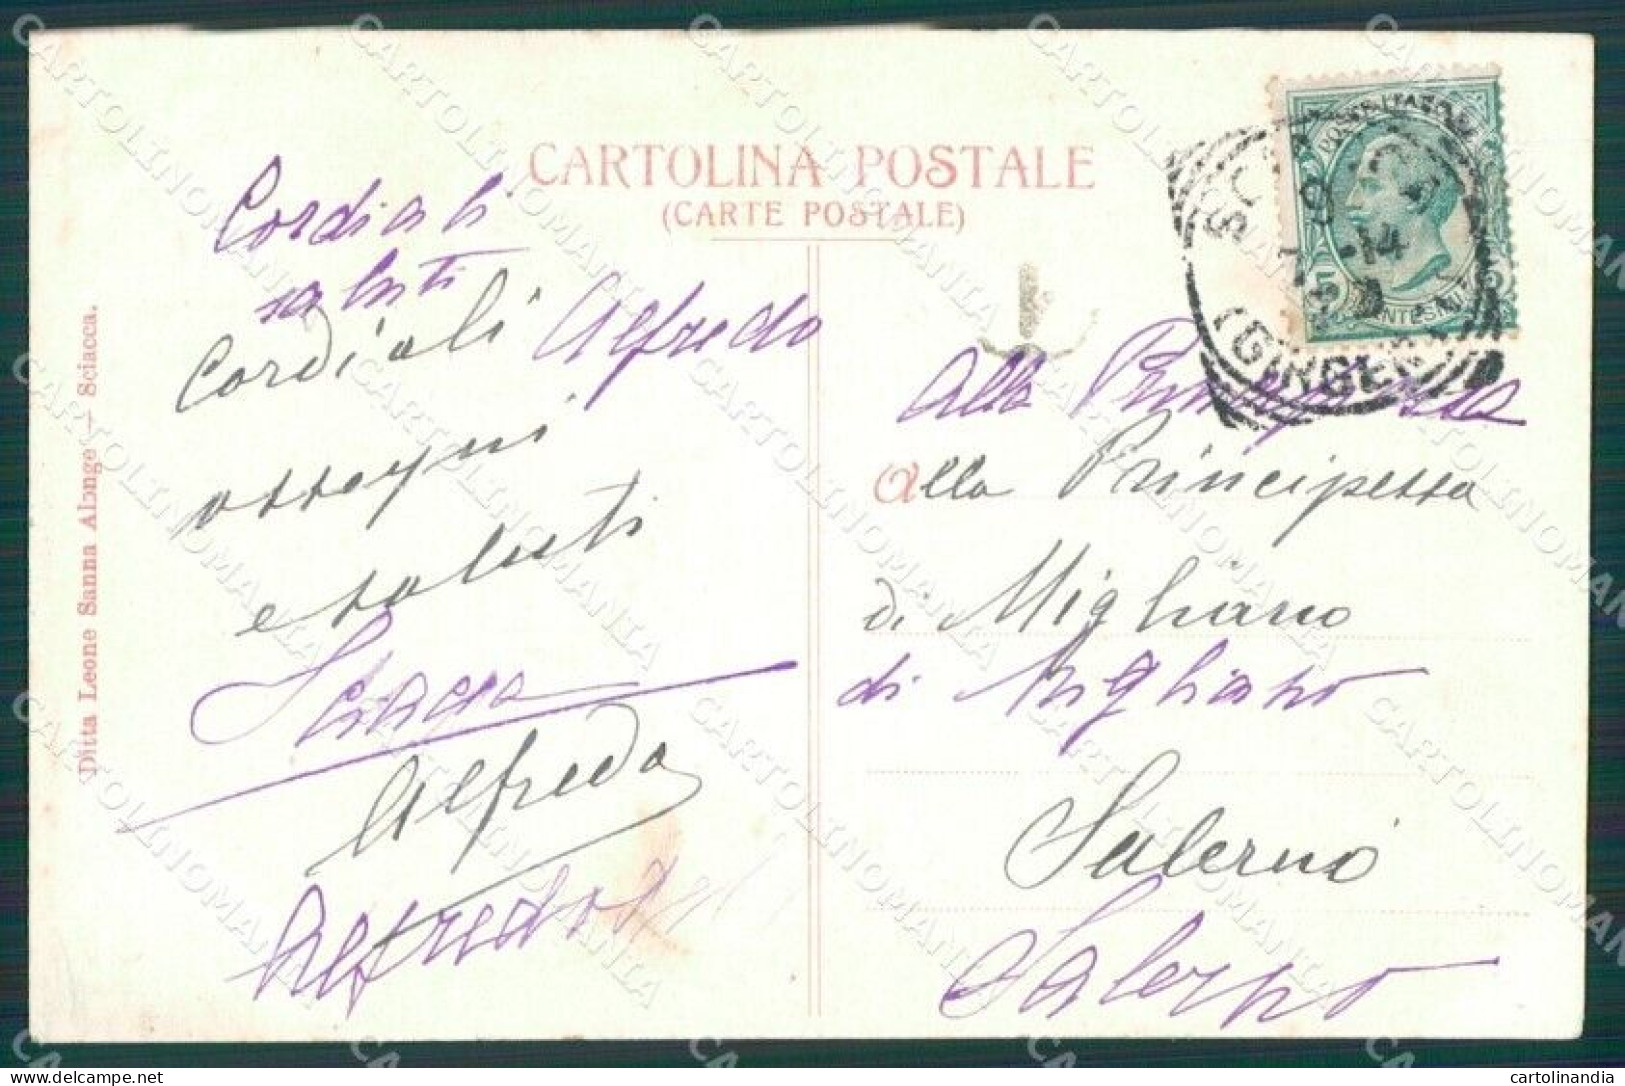 CARTOLINA POSTALE
(CARTE POSTALE)
Cordiali
saluti
Alfredo
Cordiali
ossequi
e saluti
Sciacca
Alfredo
Alfredo
Ditta Leone Sanna Alonge - Sciacca.
POSTE ITALIANE
-14
(GIRGEN
Alla Principessa
alla Principessa
di Migliano
di Migliano
Salerno
Salerno
cartolinandia
CARTOLINOMANIA